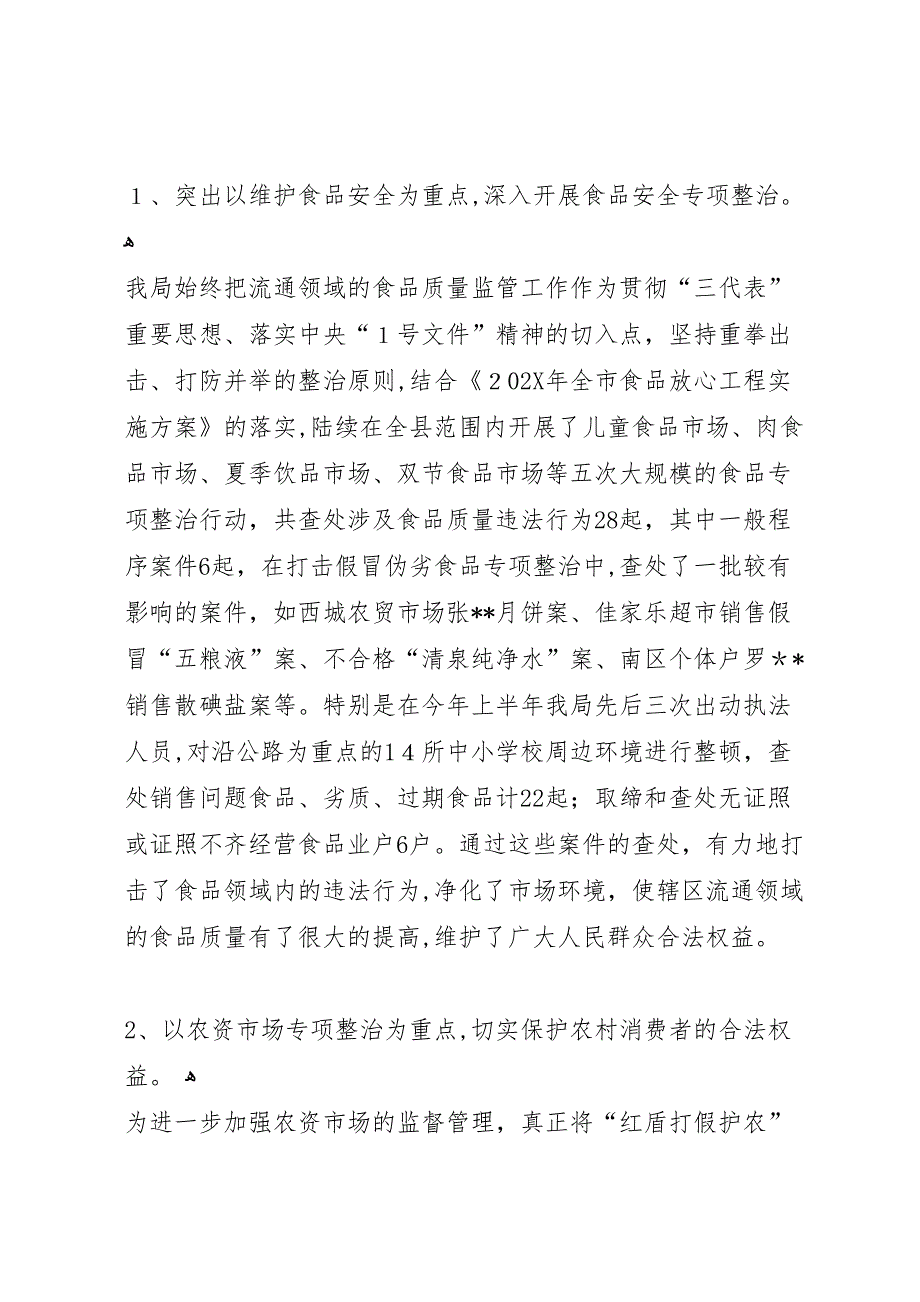 １、突出以维护食品安全为重点,深入开展食品安全专项整治。
ﻫ
我局始终把流通领域的食品质量监管工作作为贯彻“三代表”
重要思想、落实中央“１号文件”精神的切入点，坚持重拳出
击、打防并举的整治原则,结合《２02X年全市食品放心工程实
施方案》的落实,陆续在全县范围内开展了儿童食品市场、肉食
品市场、夏季饮品市场、双节食品市场等五次大规模的食品专
项整治行动，共查处涉及食品质量违法行为28起，其中一般程
序案件6起，在打击假冒伪劣食品专项整治中,查处了一批较有
影响的案件，如西城农贸市场张**月饼案、佳家乐超市销售假
冒“五粮液”案、不合格“清泉纯净水”案、南区个体户罗＊*
销售散碘盐案等。特别是在今年上半年我局先后三次出动执法
人员,对沿公路为重点的1４所中小学校周边环境进行整顿，查
处销售问题食品、劣质、过期食品计22起；取缔和查处无证照
或证照不齐经营食品业户6户。通过这些案件的查处，有力地打
击了食品领域内的违法行为,净化了市场环境，使辖区流通领域
的食品质量有了很大的提高,维护了广大人民群众合法权益。
2、以农资市场专项整治为重点,切实保护农村消费者的合法权
益。 ﻫ
为进一步加强农资市场的监督管理，真正将“红盾打假护农”